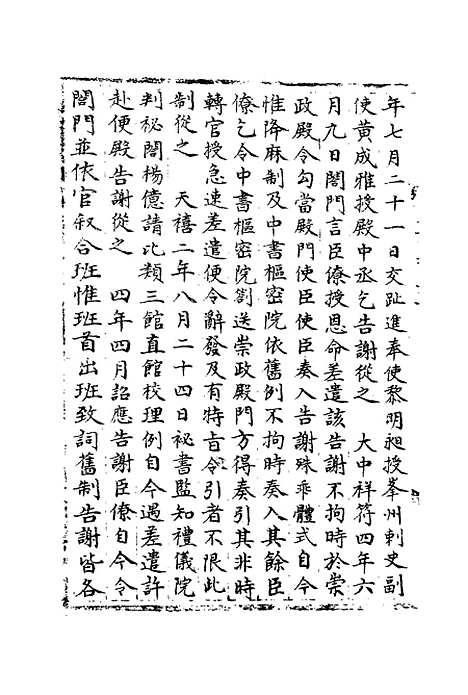 年七月二十一日交趾進奉使黎明昶授峯州刺史副
使黃成雅授殿中丞乞告謝從之　大中祥符四年六
月九日閤門言臣僚授恩命差遣該告謝不拘時於崇
政殿令勾當殿門使臣使臣奏入告謝殊乖體式自今
惟降麻制及中書樞密院依舊例不拘時奏入其餘臣
僚乞令中書樞密院劄送崇政殿門方得奏引其非時
轉官授急速差遣便令辭發及有特旨令引者不限此
制從之　天禧二年八月二十四日祕書監知禮儀院
判秘閤楊億請比類三館直館校理例自今遇差遣許
赴便殿告謝從之　四年四月詔應告謝臣僚自今令
閤門並依官叙合班惟班首出班致詞舊制告謝皆各